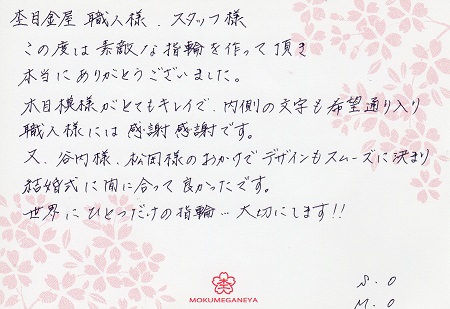 杢目金屋 職人様．スタッフ様
この度は素敵な指輪を作って頂き
本当にありがとうございました。
木目模様がとてもキレイで、内側の文字も希望通り入り
職人様には感謝感謝です。
又、谷内様、松岡様のおかげでデザインもスムーズに決まり
結婚式に間に合って良かったです。
世界にひとつだけの指輪…大切にします!!
MOKUMEGANEYA
S.O
M.O